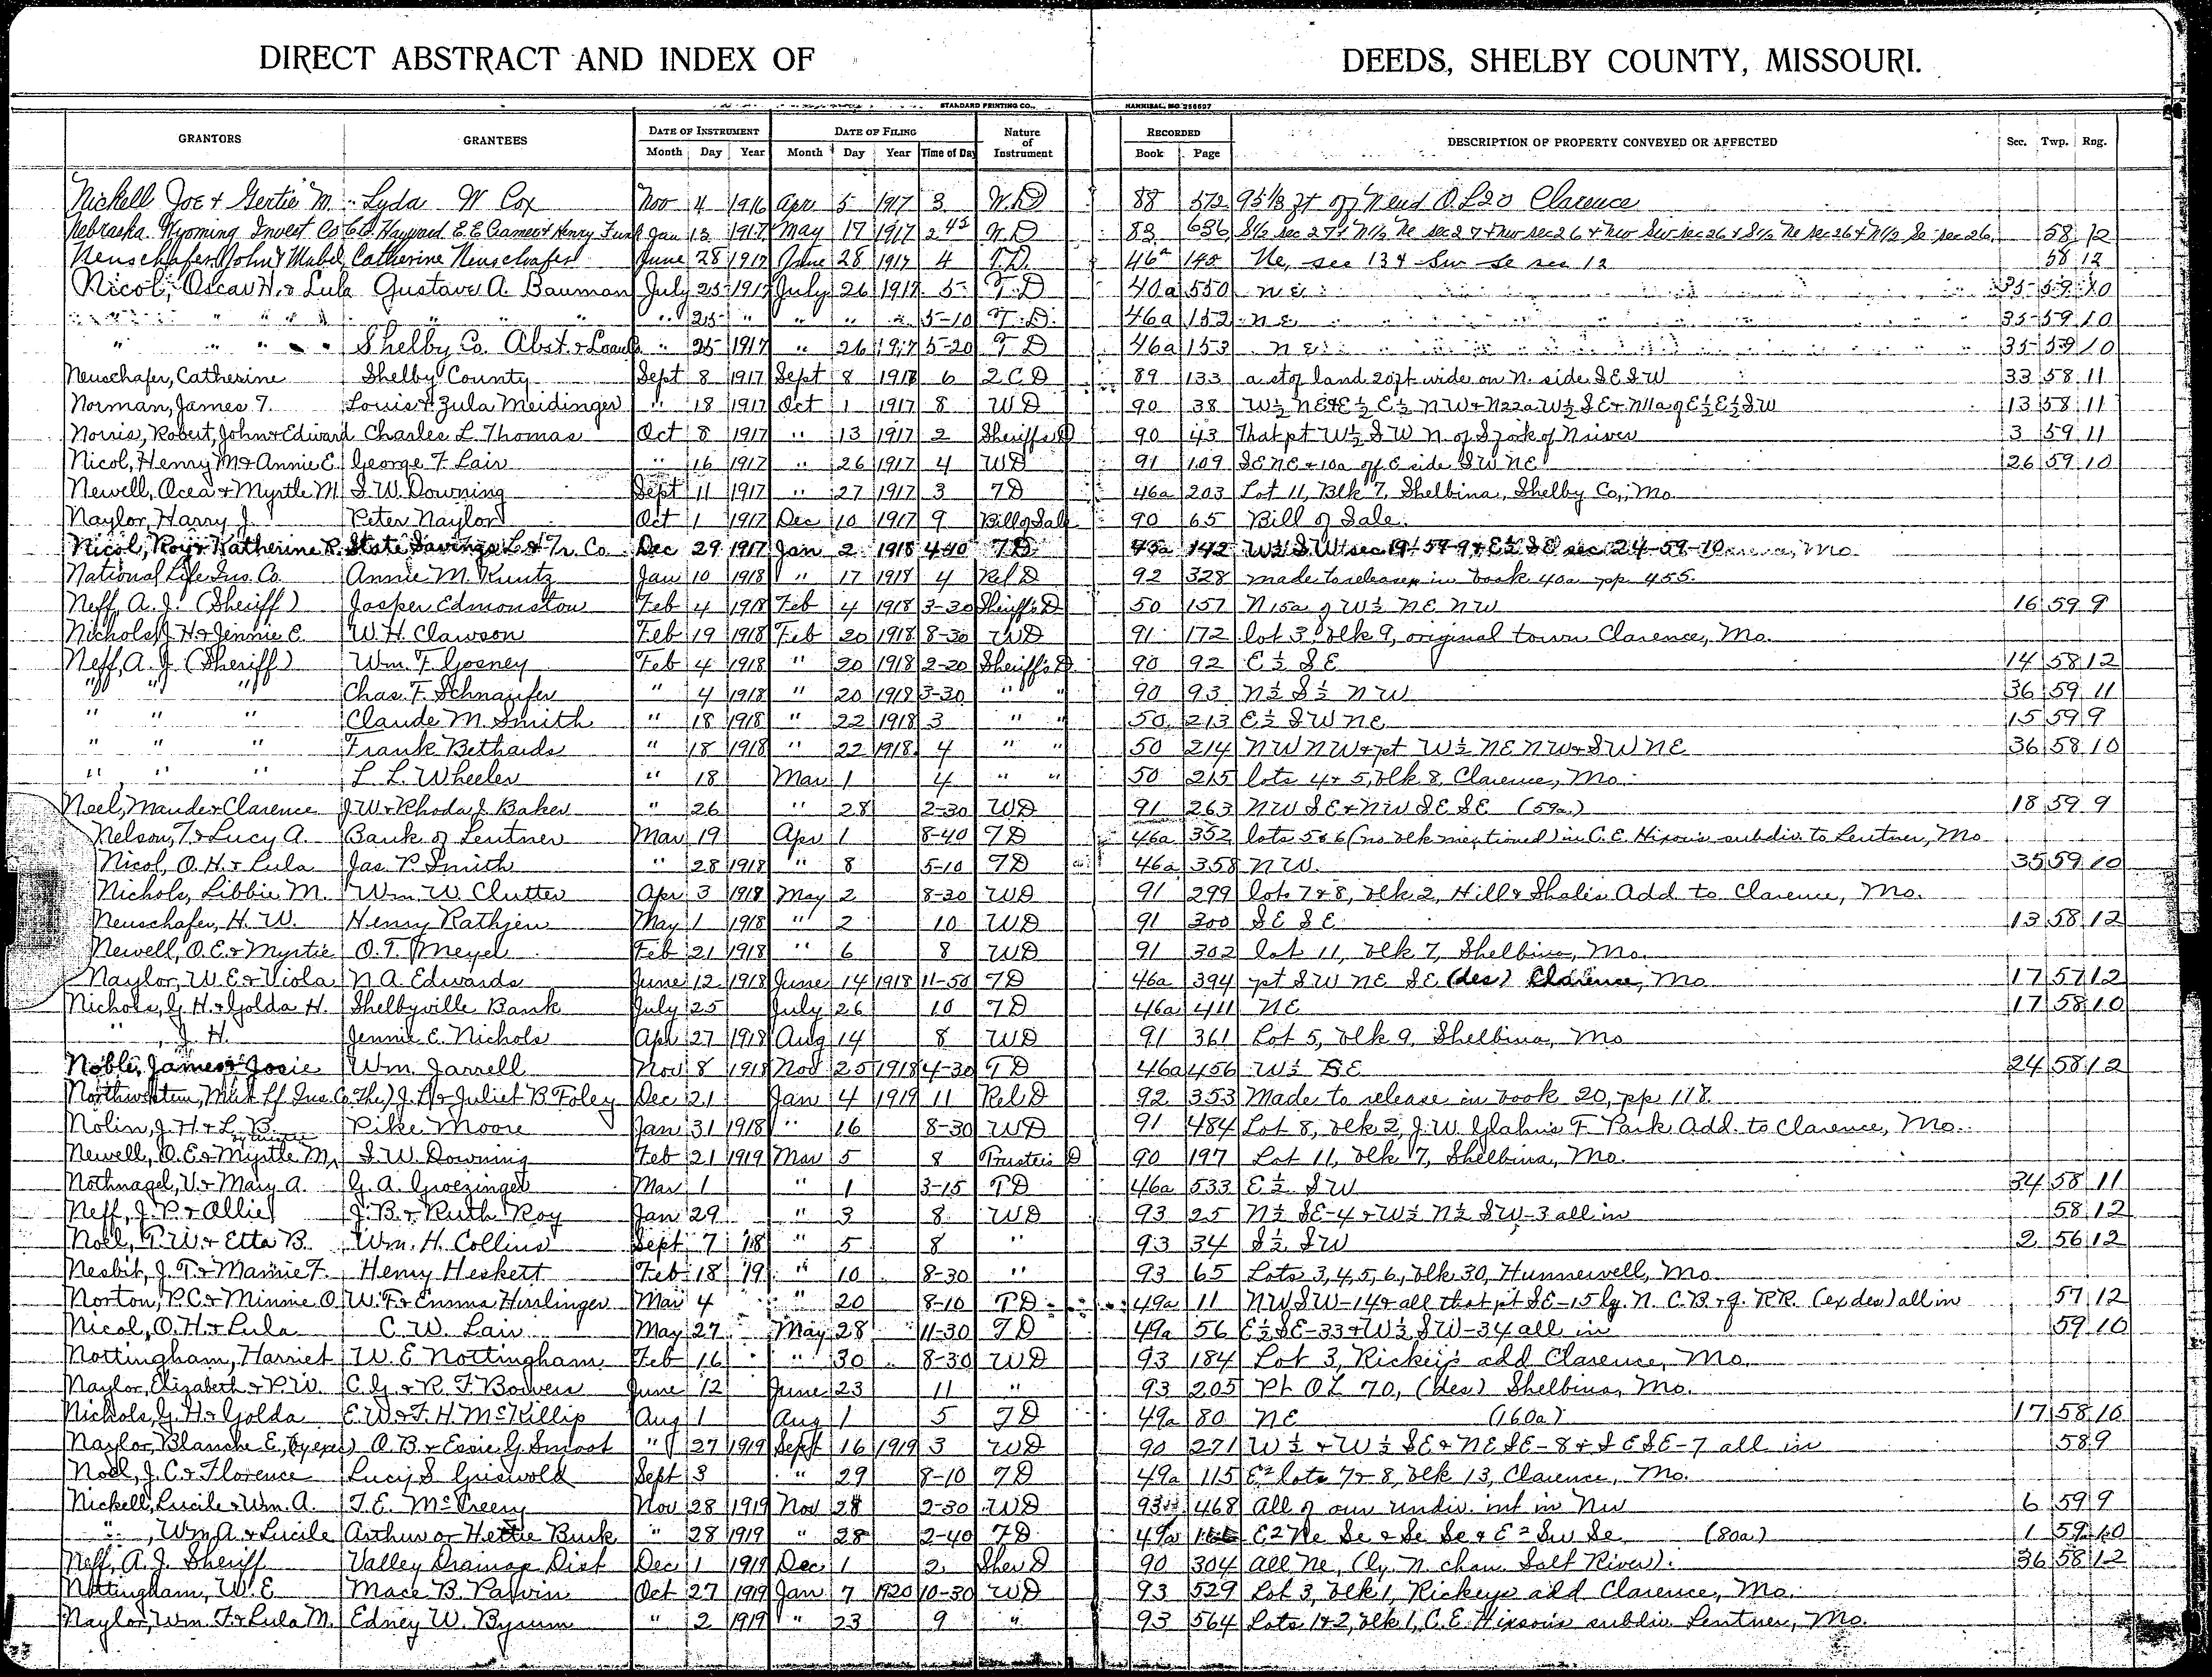 DIRECT ABSTRACT AND INDEX OF DEEDS, SHELBY COUNTY, MISSOURI.
STANDARD PRINTING CO., HANNIBAL, MO 256607
GRANTORS GRANTEES DATE OF INSTRUMENT DATE OF FILING Nature of Instrument RECORDED DESCRIPTION OF PROPERTY CONVEYED OR AFFECTED Sec. Twp. Rng.
Month Day Year Month Day Year Time of Day Book Page
Nickell Joe & Gertie M. Lyda W Cox Nov 4 1916 Apr 5 1917 3 W.D 88 572 95 1/3 ft off N end O.L 20 Clarence
Nebraska Wyoming Invest Co C.D. Hayward E.E Cramer & Henry Funk Jan 13 1917 May 17 1917 2 45 W.D 83 636 S 1/2 sec 27 & N 1/2 Ne sec 27 & Nw sec 26 & Nw Sw sec 26 & S 1/2 Ne sec 26 & N 1/2 Se sec 26 58 12
Neuschafer John & Mabel Catherine Neuschafer June 28 1917 June 28 1917 4 T.D. 46a 145 Ne, sec 13 & Sw Se sec 12 58 12
Nicol, Oscar H. & Lula Gustave A. Bauman July 25 1917 July 26 1917 5 T.D 40a 550 NE 35 59 10
" " " " " " " 25 " " " " 5-10 T.D. 46a 152 NE 35 59 10
" " " " Shelby Co. Abst. & Loan Co " 25 1917 " 26 1917 5-20 T D 46a 153 NE 35 59 10
Neuschafer, Catherine Shelby County Sept 8 1917 Sept 8 1917 6 2 C D 89 133 a st of land 20 ft wide on N. side SE SW 33 58 11
Norman, James T. Louis & Zula Meidinger " 18 1917 Oct 1 1917 8 WD 90 38 W½ NE & E½ E½ NW & N22a W½ SE & N11a of E½ E½ SW 13 58 11
Norris, Robert, John & Edward Charles L. Thomas Oct 8 1917 " 13 1917 2 Sheriffs D 90 43 That pt W½ SW N. of S fork of N river 3 59 11
Nicol, Henry M & Annie E. George F. Lair " 16 1917 " 26 1917 4 WD 91 109 SE NE & 10a off E side SW NE 26 59 10
Newell, Ocea & Myrtle M S.W. Downing Sept 11 1917 " 27 1917 3 TD 46a 203 Lot 11, Blk 7, Shelbina, Shelby Co., Mo.
Naylor, Harry J. Peter Naylor Oct 1 1917 Dec 10 1917 9 Bill of Sale 90 65 Bill of Sale.
Nicol, Roy & Katherine R. State Savings L. & Tr. Co Dec 29 1917 Jan 2 1918 4-10 TD 43a 142 W½ SW sec 19-59-9 & E½ SE sec 24-59-10
National Life Ins. Co. Annie M. Kuntz Jan 10 1918 " 17 1918 4 Rel D 92 328 made to release in book 40a pp 455.
Neff, A. J. (Sheriff) Jasper Edmonston Feb 4 1918 Feb 4 1918 3-30 Sheriff's D 50 157 N 15a of W½ NE NW 16 59 9
Nichols, J H & Jennie E. W.H. Clawson Feb 19 1918 Feb 20 1918 8-30 WD 91 172 lot 3, blk 9, original town Clarence, Mo.
Neff, A. J. (Sheriff) Wm. F. Gosney Feb 4 1918 " 20 1918 2-20 Sheriff's D 90 92 E½ SE 14 58 12
" " " Chas. F. Schnaufer " 4 1918 " 20 1918 3-30 " " 90 93 N½ S½ NW 36 59 11
" " " Claude M. Smith " 18 1918 " 22 1918 3 " " 50 213 E½ SW NE 15 59 9
" " " Frank Bethards " 18 1918 " 22 1918 4 " " 50 214 NW NW & pt W½ NE NW & SW NE 36 58 10
" " " L. L. Wheeler " 18 Mar 1 4 " " 50 215 lots 4 & 5, blk 8, Clarence, Mo.
Noel, Maude & Clarence J.W. & Rhoda J. Baker " 26 " 28 2-30 WD 91 263 NW SE & NW SE SE (59a) 18 59 9
Nelson, T. & Lucy A. Bank of Lentner Mar 19 Apr 1 8-40 TD 46a 352 lots 5 & 6 (no blk mentioned) in C.E. Hixon's subdiv. to Lentner, Mo
Nicol, O. H. & Lula Jas. P. Smith " 28 1918 " 8 5-10 TD 46a 358 NW. 35 59 10
Nichols, Libbie M. Wm. W. Clutter Apr 3 1918 May 2 8-30 WD 91 299 lots 7 & 8, blk 2, Hill & Shale's Add to Clarence, Mo.
Neuschafer, H. W. Henry Rathjen May 1 1918 " 2 10 WD 91 300 SE SE 13 58 12
Newell, O.E. & Myrtie O. T. Meyel Feb 21 1918 " 6 8 WD 91 302 lot 11, blk 7, Shelbina, Mo.
Naylor, W. E. & Viola N. A. Edwards June 12 1918 June 14 1918 11-50 TD 46a 394 pt SW NE SE (des) Clarence, Mo 17 57 12
Nichols, G. H. & Golda H. Shelbyville Bank July 25 July 26 10 TD 46a 411 NE 17 58 10
" , J. H. Jennie E. Nichols Apr 27 1918 Aug 14 8 WD 91 361 Lot 5, blk 9, Shelbina, Mo
Noble, James & Josie Wm. Jarrell Nov 8 1918 Nov 25 1918 4-30 TD 46a 456 W½ SE 24 58 12
Northwestern, Mut Lf Ins. Co. (The) J. L. & Juliet B Foley Dec 21 Jan 4 1919 11 Rel D 92 353 Made to release in book 20, pp 118.
Nolin, J. H. & L. B. Pike Moore Jan 31 1918 " 16 8-30 WD 91 484 Lot 8, blk 2, J.W. Glahn's F. Park Add. to Clarence, Mo.
by trustee
Newell, O. E. & Myrtle M. S. W. Downing Feb 21 1919 Mar 5 8 Trustees D 90 197 Lot 11, blk 7, Shelbina, Mo.
Nothnagel, V. & Mary A. G. A. Groezinger Mar 1 " 1 3-15 TD 46a 533 E½ SW 34 58 11
Neff, J. P. & Allie J. B. & Ruth Roy Jan 29 " 3 8 WD 93 25 N½ SE-4 & W½ N½ SW-3 all in 58 12
Noel, T. W. & Etta B. Wm. H. Collins Sept 7 '18 " 5 8 " 93 34 S½ SW 2 56 12
Nesbit, J. T. & Mamie F. Henry Heskett Feb 18 '19 " 10 8-30 " 93 65 Lots 3, 4, 5, 6, blk 30, Hunnewell, Mo
Norton, P.C. & Minnie O W. F. & Emma Hirrlinger Mar 4 " 20 8-10 TD 49a 11 NW SW-14 & all that pt SE-15 lg. N. C. B. & Q. RR. (ex des) all in 57 12
Nicol, O. H. & Lula C. W. Lair May 27 May 28 11-30 TD 49a 56 E½ SE-33 & W½ SW-34 all in 59 10
Nottingham, Harriet W. E Nottingham Feb 16 " 30 8-30 WD 93 184 Lot 3, Rickey's add Clarence, Mo.
Naylor, Elizabeth & P.W. C. G. & R. F. Bowers June 12 June 23 11 " 93 205 Pt OL 70, (des) Shelbina, Mo.
Nichols, G. H. & Golda E. W. & F. H. McKillip Aug 1 Aug 1 5 TD 49a 80 NE (160a) 17 58 10
Naylor, Blanche E., (by exec) O. B. & Essie G. Smoot " 27 1919 Sept 16 1919 3 WD 90 271 W½ & W½ SE & NE SE-8 & SE SE-7 all in 58 9
Noel, J. C. & Florence Lucy S. Griswold Sept 3 " 29 8-10 TD 49a 115 E² lots 7 & 8, blk 13, Clarence, Mo.
Nickell, Lucile & Wm. A. T. E. McCreery Nov 28 1919 Nov 28 2-30 WD 93 468 All of our undiv. int in Nw 6 59 9
" , Wm A. & Lucile Arthur or Hettie Burk " 28 1919 " 28 2-40 TD 49a E² Ne Se & Se Se & E² Sw Se (80a) 1 59 10
Neff, A. J. Sheriff Valley Drainage Dist Dec 1 1919 Dec 1 2 Sher D 90 304 All Ne, (ly. N. chan. Salt River). 36 58 12
Nottingham, W. E Mace B. Parvin Oct 27 1919 Jan 7 1920 10-30 WD 93 529 Lot 3, blk 1, Rickeys add Clarence, Mo.
Naylor, Wm. T. & Lula M. Edney W. Byrum " 2 1919 " 23 9 " 93 564 Lots 1 & 2, blk 1, C. E. Hixson's subdiv. Lentner, Mo.